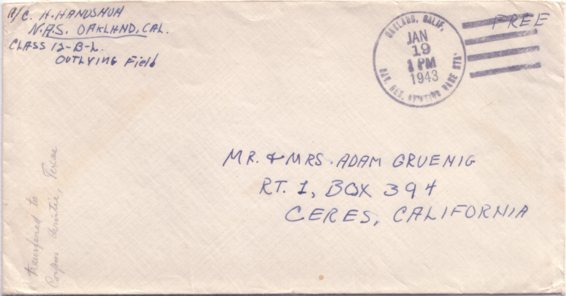 A/C. H. HANUSHUH
N.A.S. OAKLAND, CAL.
CLASS 12-B-L.
OUTLYING FIELD
OAKLAND, CALIF.
JAN
19
1 PM
1943
NAV. RES. AVIATION BASE STA.
FREE
MR. & MRS. ADAM GRUENIG
RT. 1, BOX 394
CERES, CALIFORNIA
transferred to
Corpus Christie, Texas